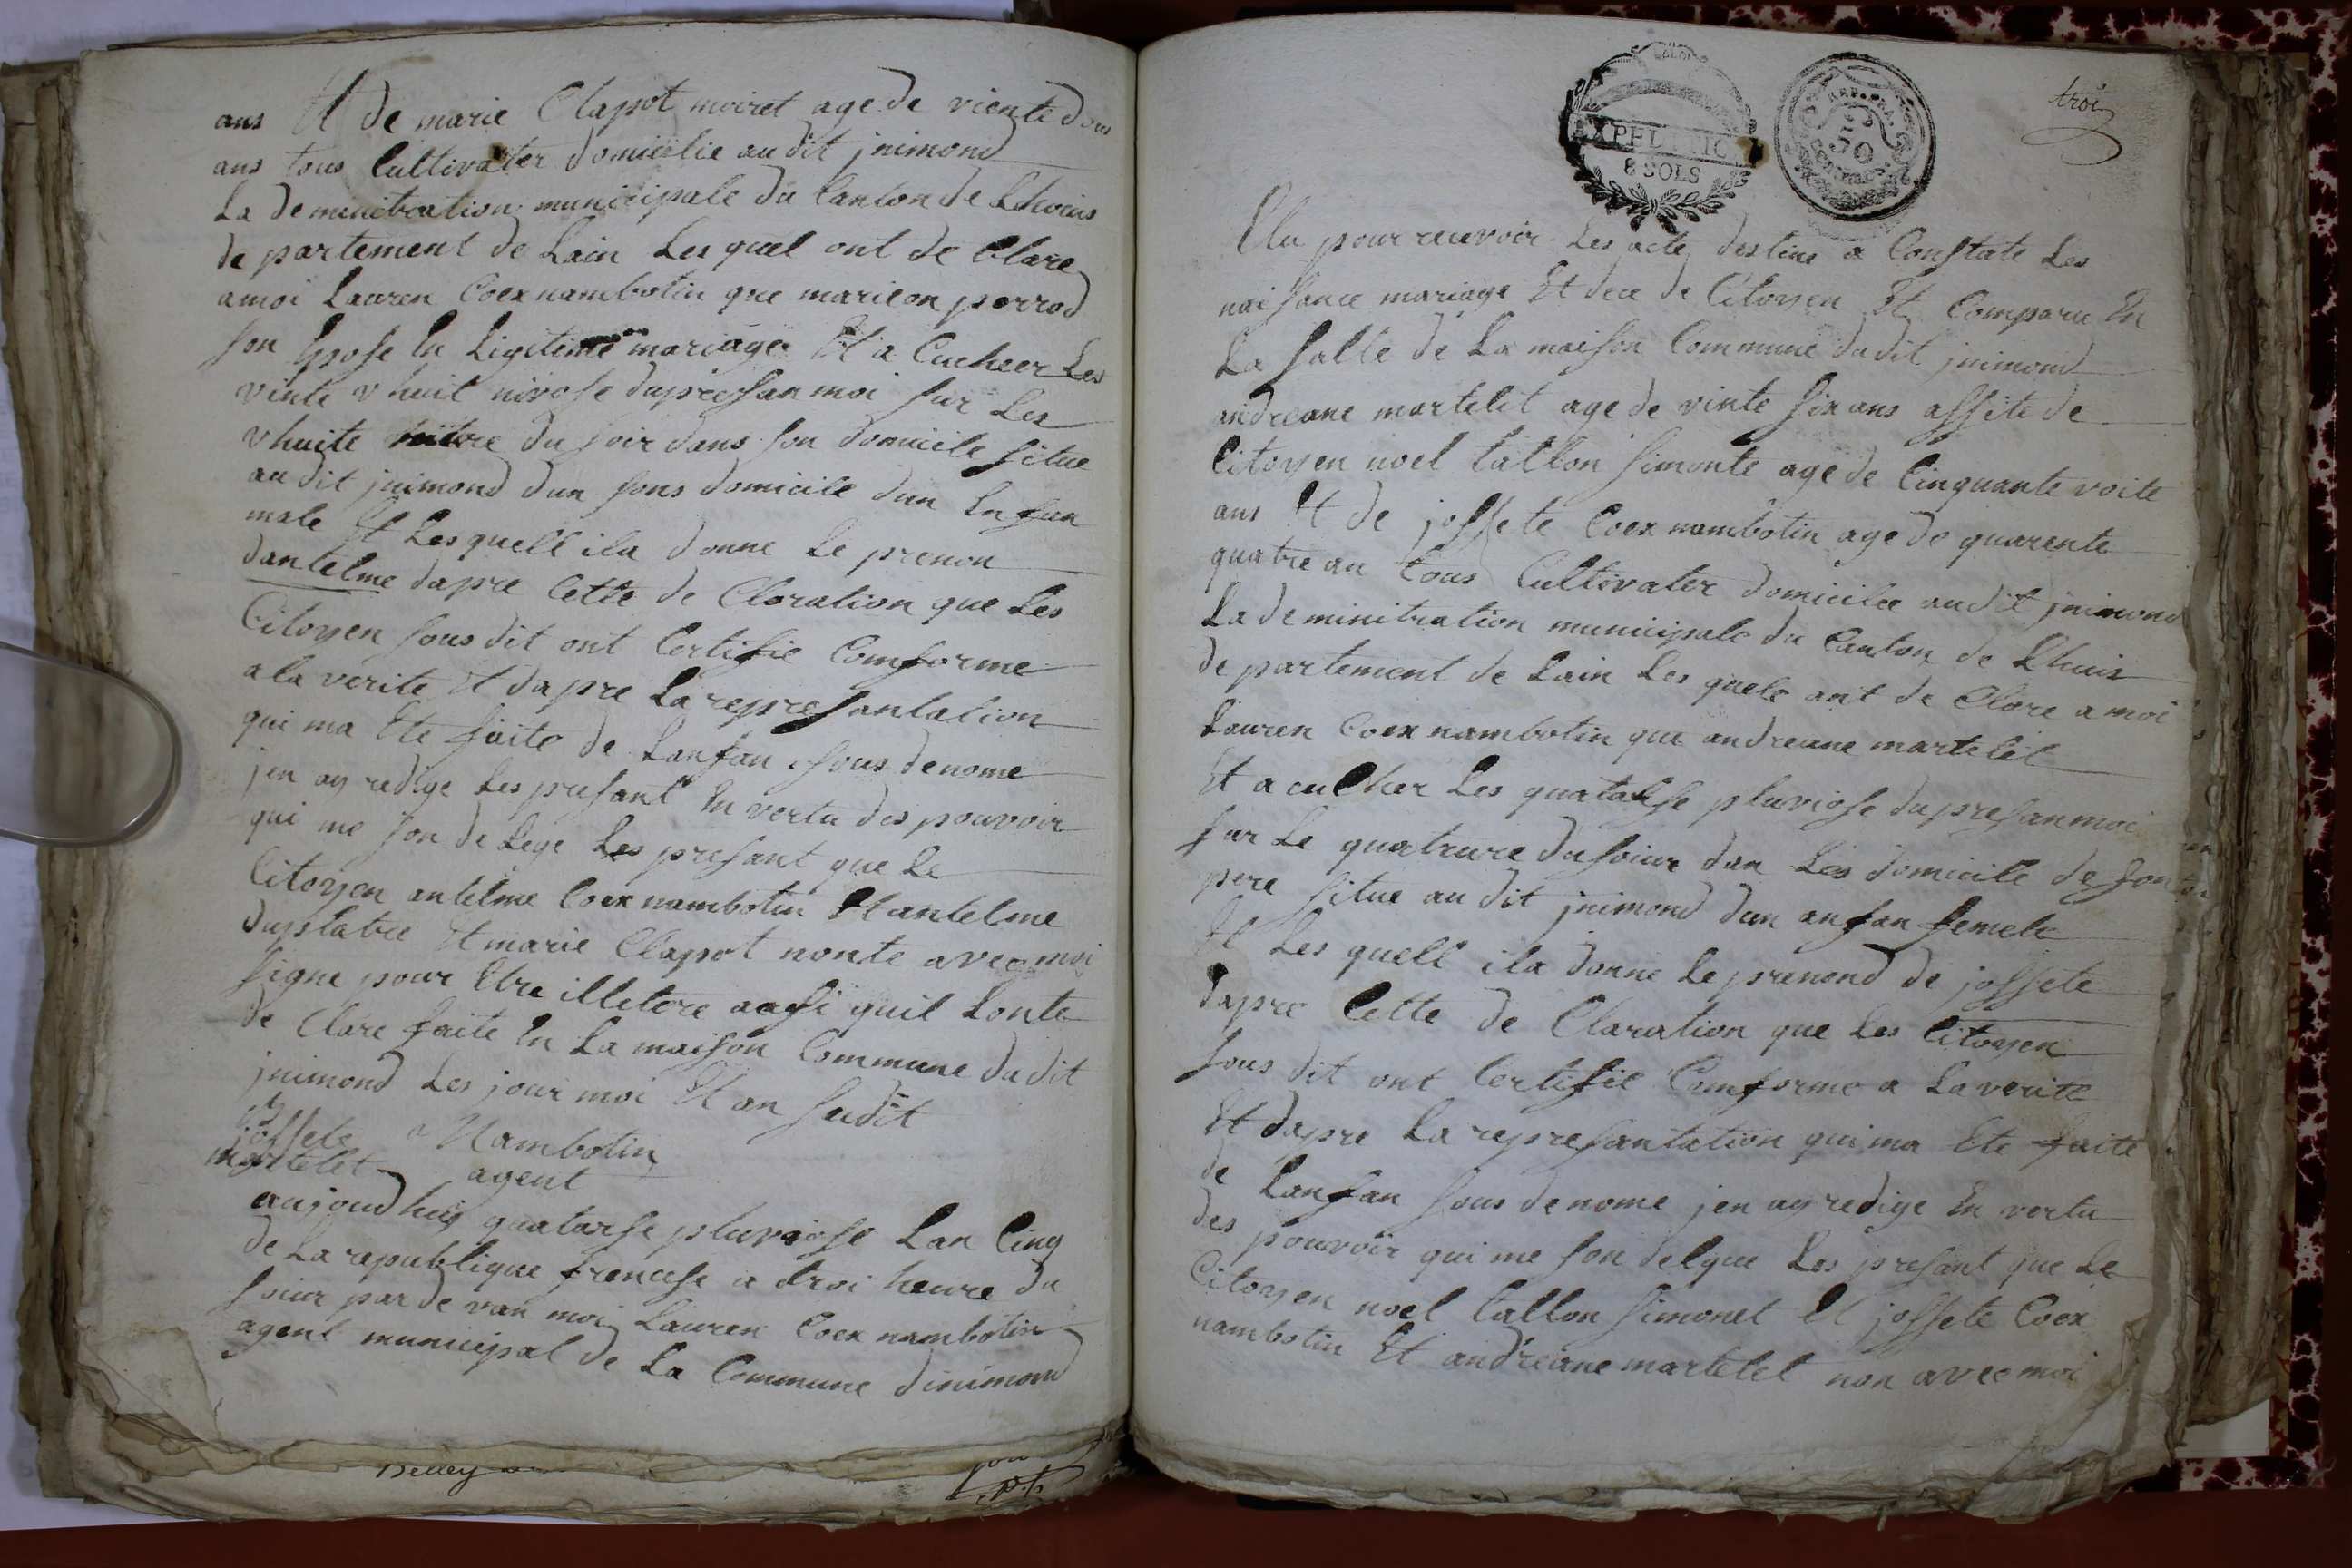 ans Et de marie Clapot moiret age de viente dous
ans tous Cultivater domicilie au dit jnimond
La deminitration municipale du Canton de Lhoeius
de partement de Lain Les quel ont de Clare
amoi Lauren Coex nambotin que marieon perrod
son Epose En Ligitime mariage Et a Cucheer Les
vinte v huit nivose dupresan moi sur Les
vhuite hitore du soir dans son domicile situe
au dit jnimond dun sons domicile dun Enfan
male Et Les quell ila donne Le prenon
dantelme dapre Cette de Claration que Les
Citoyen sous dit ont Certifie Comforme
a la verite Et dapre La represantation
qui ma Ete faite de Lanfan sous denome
jen ay redige Les presant En vertu des pouvoir
qui me son de Lege Les presant que Le
Citoyen antelme Coex nambotin Et antelme
duplatre Et marie Clapot nonte avec moi
signe pour Etre illetere ausi quil Lonte
de Clare faite En La maison Commune du dit
jnimond Les jour moi Et an sudit
Nambotin
agent
jossete
martelet
aujoud huy quatorse pluviose Lan Cinq
de La republique francese a troi heure du
soiur par de van moi Lauren Coex nambotin
agent municipal de La Commune dinimond
Belley
troi
EXPEDITION
8 SOLS
REP. FRA.
50
CENTIMES
Elu pour recevoir Les acte destine a Constate Les
naisance mariage Et dece de Citoyen Et Comparu En
La salle de La maison Commune du dit jnimond
andreane martelit age de vinte six ans assite de
Citoyen noel tallon simonte age de Cinquante voite
ans Et de jossete Coex nambotin age de quarente
quatre an tous Cultivater domicilie audit jnimond
La deminitration municipale du Canton de Lhuis
de partement de Lain Les quele ont de Clare a moi
Lauren Coex nambotin que andreane martelit
Et a culher Les quatorse pluviose du presan moi
sur Le quatrure du soiur dan Les domicile de son
pere situe au dit jnimond dun anfan femele
Et Les quell ila donne Le prenond de jossete
dapre Cette de Claration que Les Citoyen
sous dit ont Certifie Comforme a La verite
Et dapre La represantation qui ma Ete faite
de Lanfan sous denome jen ay redige En vertu
des pouvoir qui me son delgue Les presant que Le
Citoyen noel tallon simonet Et jossete Coex
nambotin Et andreane martelet non avec moi